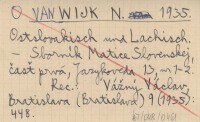 O VAN WIJK N. 1935.
Ostslovakisch und Lachisch.
– Sborník Matice Slovenskej,
část prvá, jazykoveda 13, nr. 1–2.
Rec.: Vážný Václav,
Bratislava (Bratislava) 9 (1935):
448.